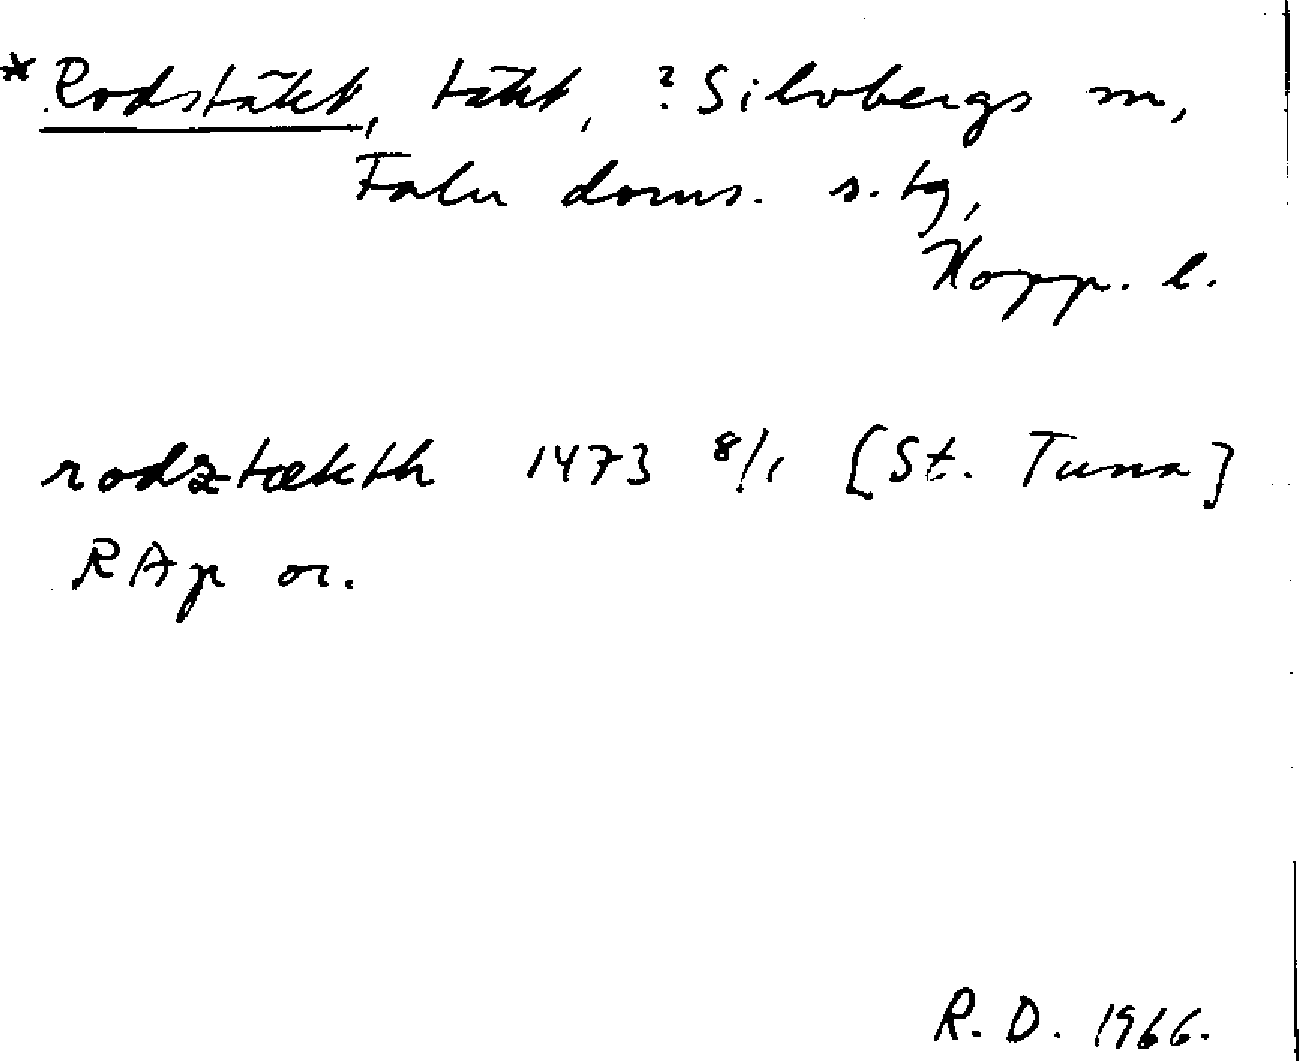 *Rodstäkt, täkt, ?Silvbergs sn,
Falu doms. s. tg,
Kopp. l.
rodztækth 1473 8/1 [St. Tuna]
RAp or.
R. D. 1966.